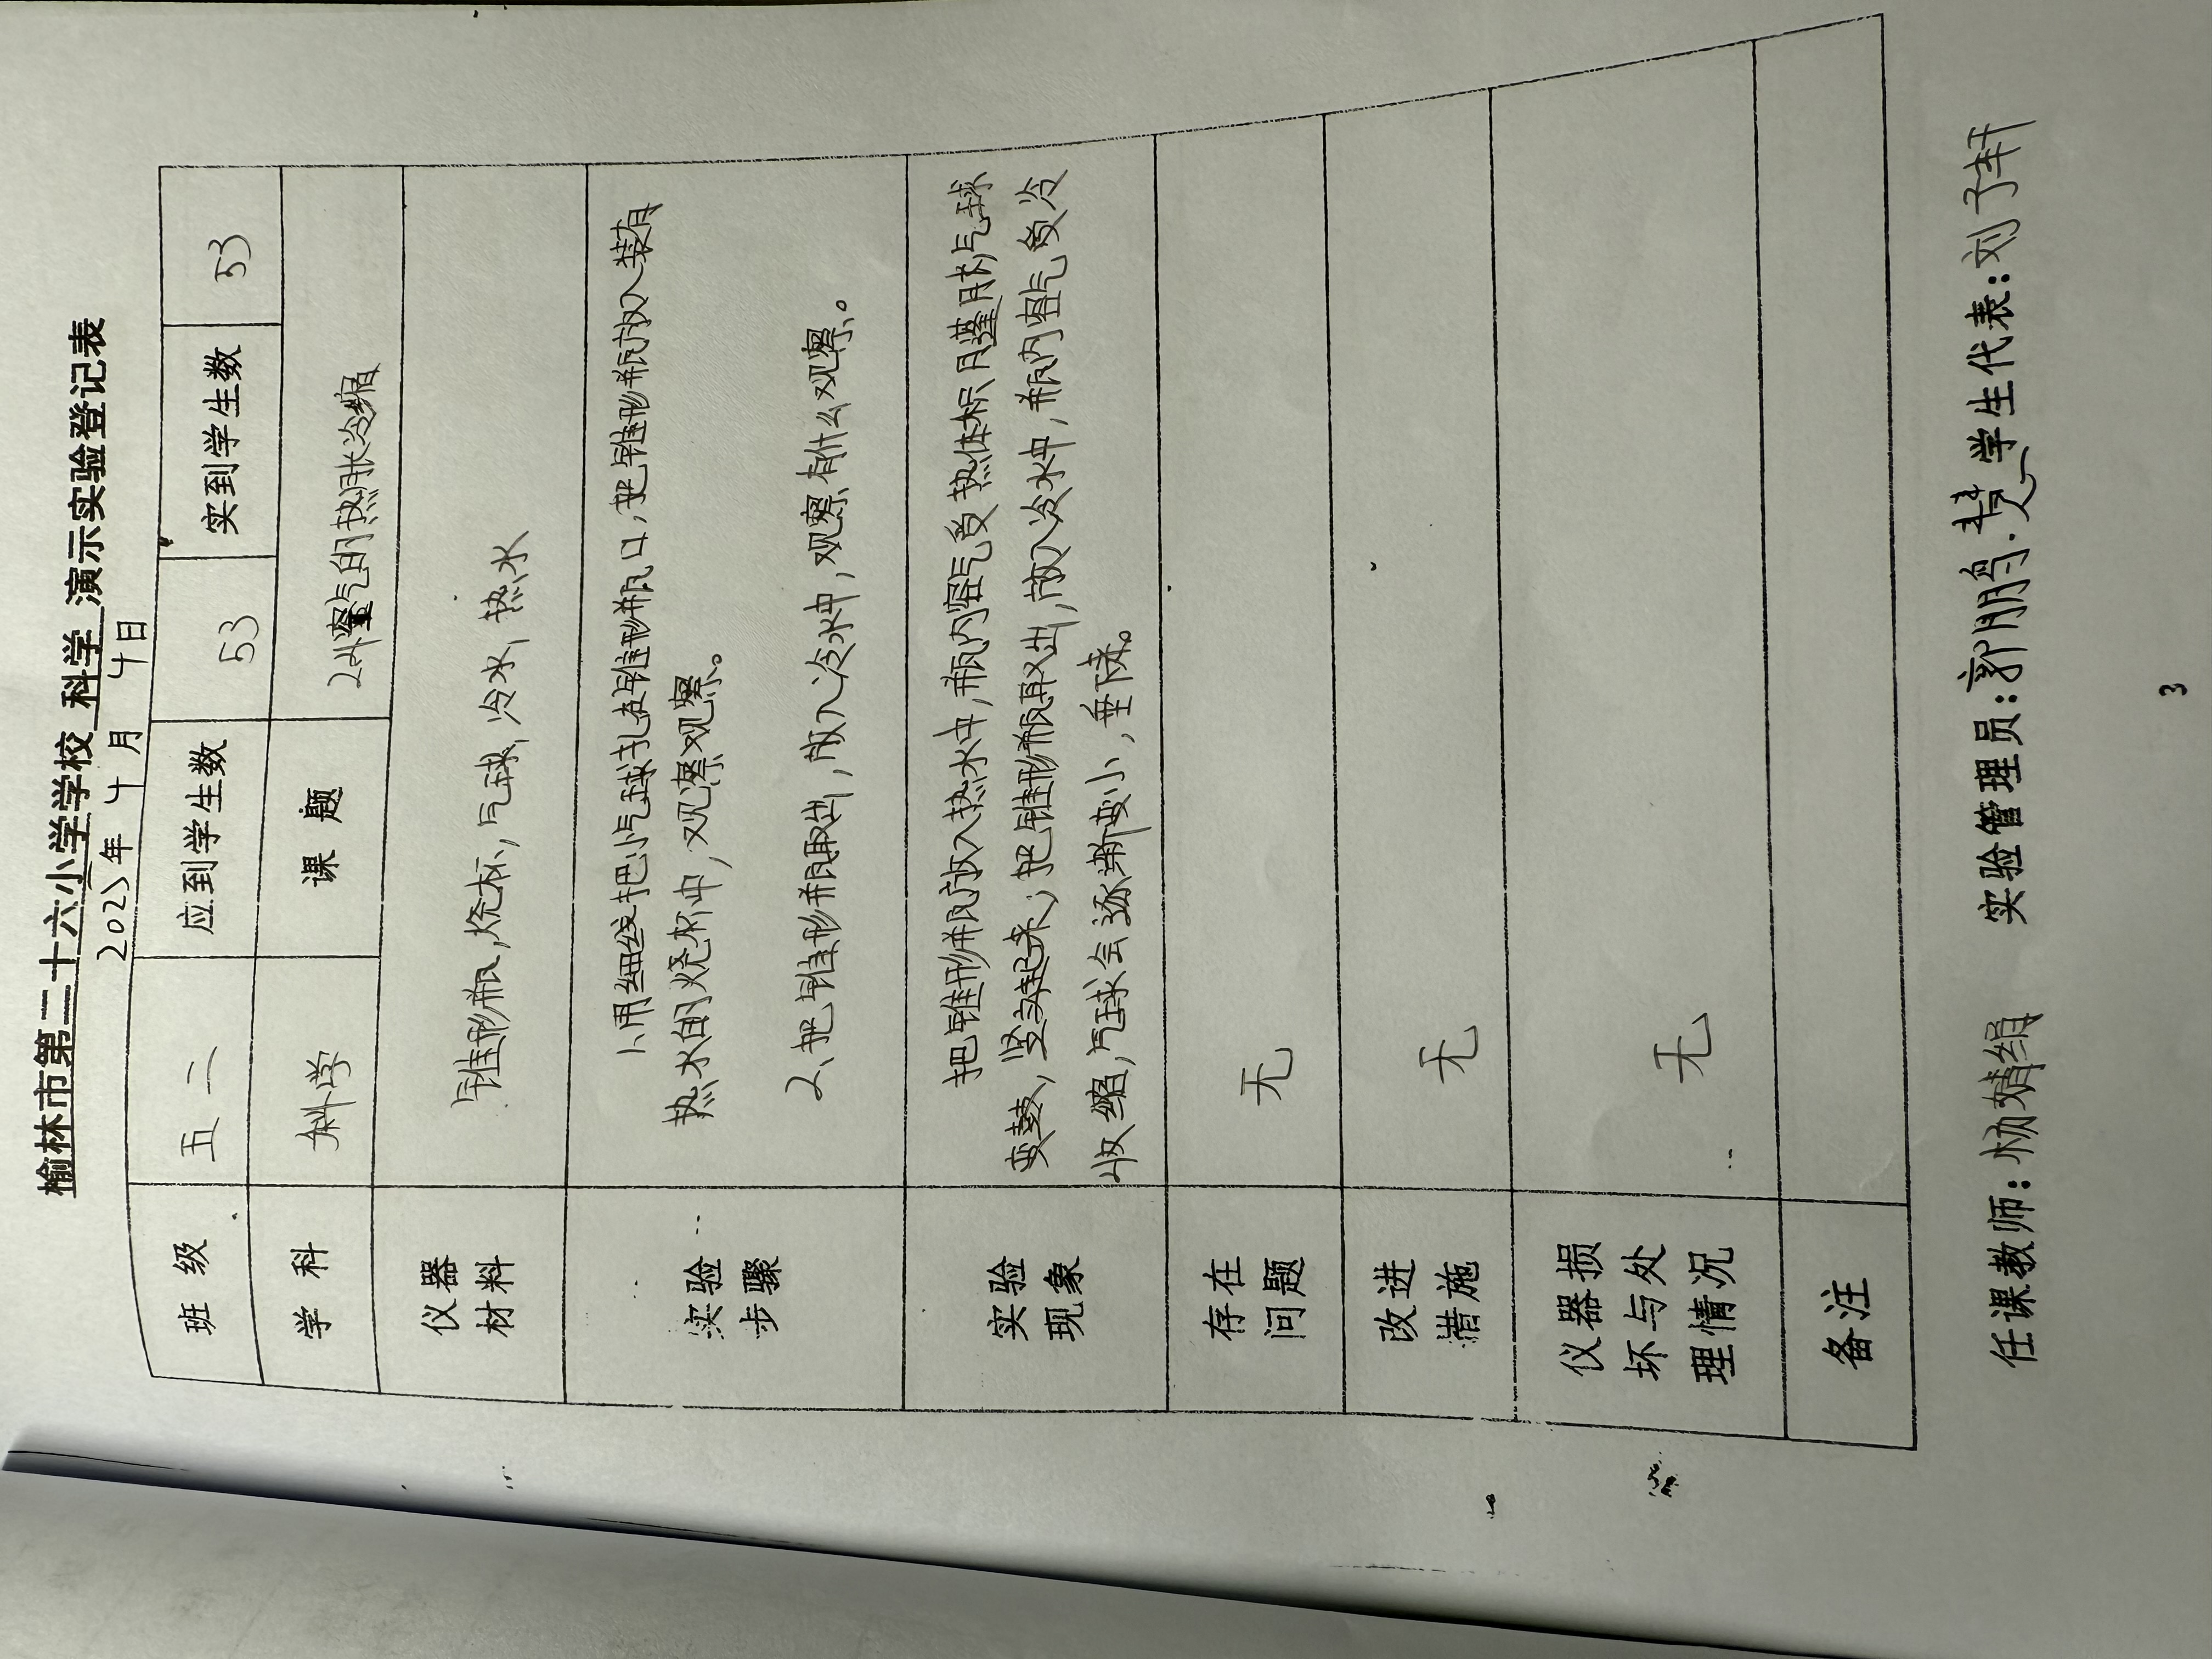 榆林市第二十六小学学校 科学 演示实验登记表
2025年 4月 4日
班 级 五二 应到学生数 53 实到学生数 53
学 科 科学 课 题 2.4空气的热胀冷缩
仪器
材料
锥形瓶,烧杯,气球,冷水,热水
实验
步骤
1、用细线把小气球扎在锥形瓶口,把锥形瓶放入装有
热水的烧杯中,观察观察。
2、把锥形瓶取出,放入冷水中,观察有什么观察。
实验
现象
把锥形瓶放入热水中,瓶内空气受热体积膨胀气球
变鼓,竖起来;把锥形瓶取出,放入冷水中,瓶内空气受冷
收缩,气球会逐渐变小,垂下来。
存在
问题
无
改进
措施
无
仪器损
坏与处
理情况
无
备注
任课教师:杨婧娟 实验管理员:郭鹏 学生代表:刘子轩
3